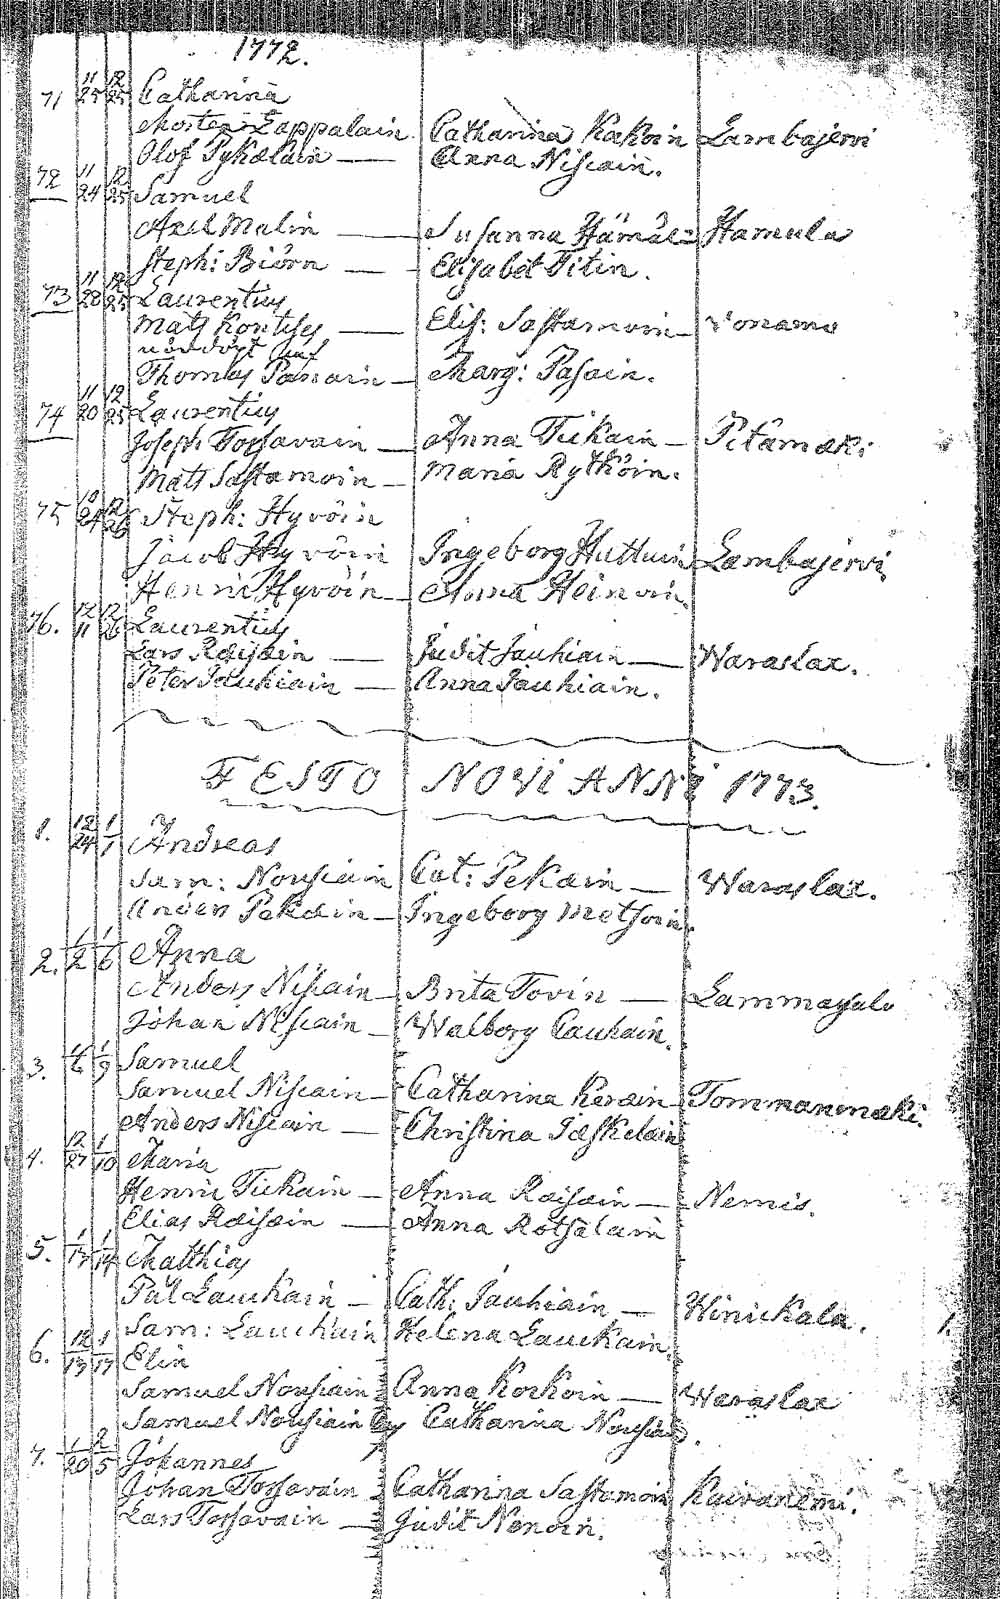 1772.
71 11/25 12/25 Catharina
Morten Lappalain Catharina Kakoin Lambajervi
Olof Pykälain — Anna Niscain.
72 11/24 12/25 Samuel
Axel Malin — Susanna Hämäl: Hamula
Steph: Biörn — Elisabet Titin.
73 11/28 12/25 Laurentius
Mats Kontses — Elis: Sastamoin —
Thomas — Marg: Pasain.
74 11/20 12/25 Laurentius
Joseph Torsavain — Anna Tickain — Pitämäki
Mats Sastamoin — Maria Rytköin.
75 10/24 12/26 Steph: Hyvöin
Jacob Hyvöin Ingeborg Huttuin Lambajervi
Henric Hyvöin — Anna Heinoin.
76. 12/11 12/26 Laurentius
Lars Räisäin — Judit Jauhiain — Waraslax.
Peter Jauhiain — Anna Jauhiain.
FESTO NOVI ANNI 1773.
1. 12/24 1/1 Andreas
Sam: Nousiain Cat: Pekäin — Waraslax.
Anders Pekäin — Ingeborg Metsoin.
2. 1/2 1/6 Anna
Anders Niscain — Brita Tovin — Lammasalo
Johan Niscain — Walborg Cauhain.
3. 1/6 1/9 Samuel
Samuel Niscain — Catharina Keräin Tommanmäki.
Anders Niscain — Christina Jäskeläin
4. 12/27 1/10 Maria
Henric Tickain — Anna Räisäin — Nemis.
Elias Räisäin — Anna Rotsalain
5. 1/13 1/14 Matthias
Pål Lauckain — Cath: Jauhiain — Hinickala.
Sam: Lauckain Helena Lauckain.
6. 12/13 1/17 Elin
Samuel Nousiain Anna Korkoin — Waraslax
Samuel Nousiain Catharina Nousiain.
7. 1/20 2/5 Johannes
Johan Torsavain Catharina Sastamoin Kaivanemi.
Lars Torsavain — Judit Nenoin.